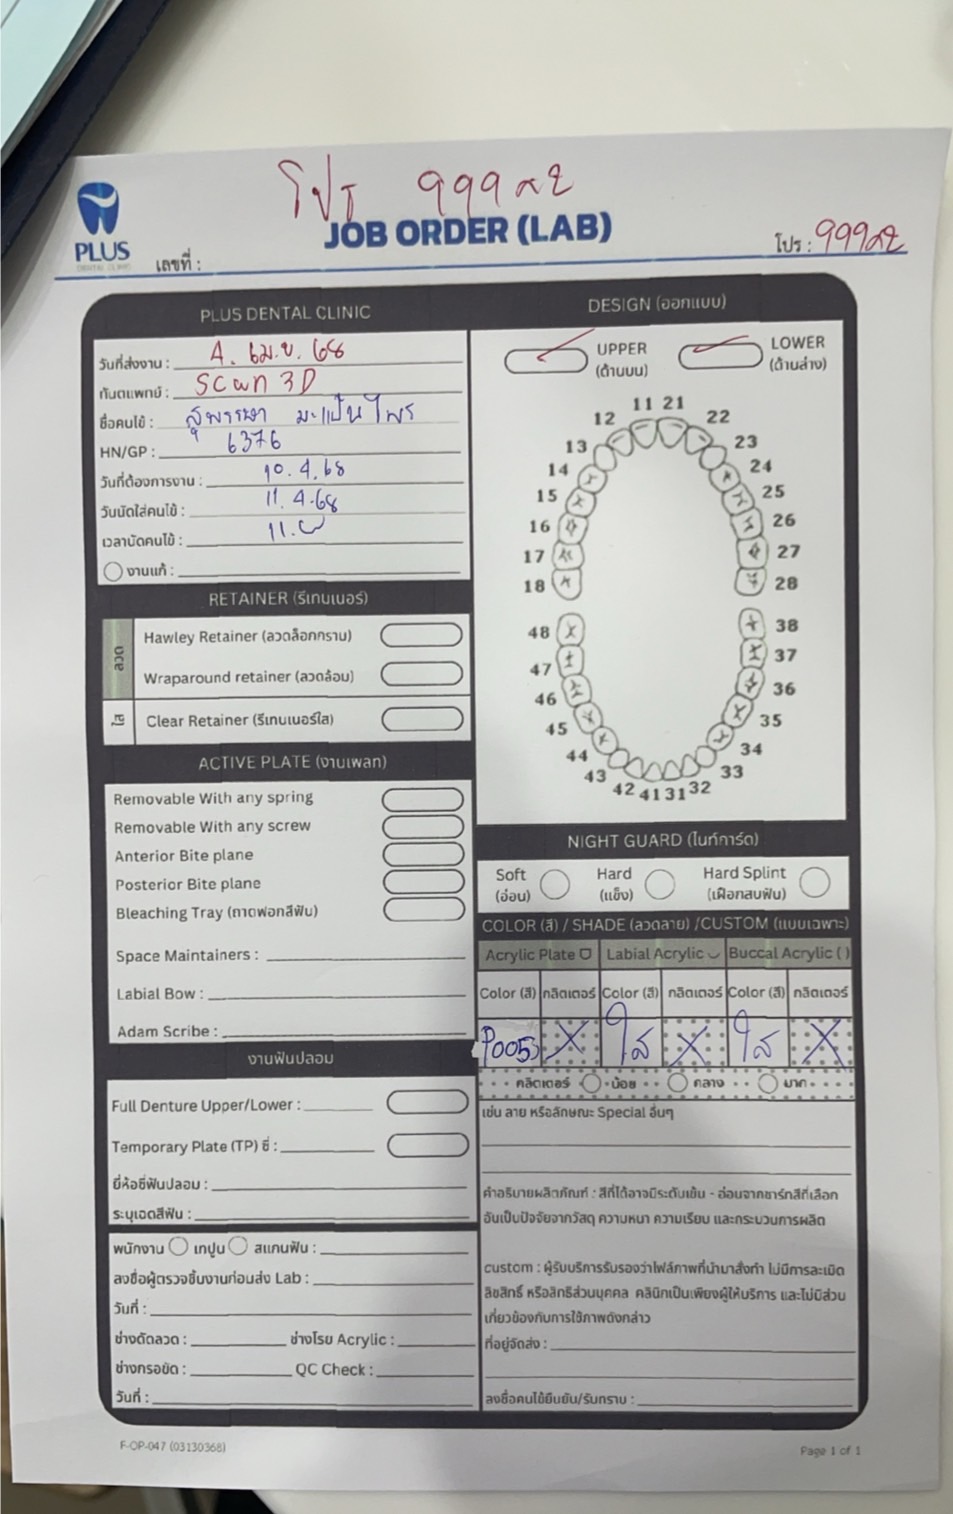 โปร 999x2
PLUS
DENTAL CLINIC
JOB ORDER (LAB)
เลขที่ :
โปร : 999x2
PLUS DENTAL CLINIC
วันที่ส่งงาน : 4. เม.ย. 68
ทันตแพทย์ : Scan 3D
ชื่อคนไข้ : สุพรรษา
HN/GP : 6376
วันที่ต้องการงาน : 10. 4. 68
วันนัดใส่คนไข้ : 11. 4. 68
เวลานัดคนไข้ : 11.
งานแก้ :
RETAINER (รีเทนเนอร์)
ลวด
Hawley Retainer (ลวดล็อกกราม)
Wraparound retainer (ลวดล้อม)
ใส
Clear Retainer (รีเทนเนอร์ใส)
ACTIVE PLATE (งานเพลท)
Removable With any spring
Removable With any screw
Anterior Bite plane
Posterior Bite plane
Bleaching Tray (ถาดฟอกสีฟัน)
Space Maintainers :
Labial Bow :
Adam Scribe :
งานฟันปลอม
Full Denture Upper/Lower :
Temporary Plate (TP) ซี่ :
ยี่ห้อซี่ฟันปลอม :
ระบุเฉดสีฟัน :
พนักงาน เทปูน สแกนฟัน :
ลงชื่อผู้ตรวจชิ้นงานก่อนส่ง Lab :
วันที่ :
ช่างดัดลวด : ช่างโรย Acrylic :
ช่างกรอขัด : QC Check :
วันที่ :
DESIGN (ออกแบบ)
UPPER (ด้านบน)
LOWER (ด้านล่าง)
11 21
12 22
13 23
14 24
15 25
16 26
17 27
18 28
48 38
47 37
46 36
45 35
44 34
43 33
42 41 31 32
NIGHT GUARD (ไนท์การ์ด)
Soft (อ่อน)
Hard (แข็ง)
Hard Splint (เฝือกสบฟัน)
COLOR (สี) / SHADE (ลวดลาย) /CUSTOM (แบบเฉพาะ)
Acrylic Plate Labial Acrylic Buccal Acrylic ( )
Color (สี) กลิตเตอร์ Color (สี) กลิตเตอร์ Color (สี) กลิตเตอร์
P005 X ใส X ใส X
กลิตเตอร์ น้อย กลาง มาก
เช่น ลาย หรือลักษณะ Special อื่นๆ
คำอธิบายผลิตภัณฑ์ : สีที่ได้อาจมีระดับเข้ม - อ่อนจากชาร์ทสีที่เลือก
อันเป็นปัจจัยจากวัสดุ ความหนา ความเรียบ และกระบวนการผลิต
custom : ผู้รับบริการรับรองว่าไฟล์ภาพที่นำมาสั่งทำ ไม่มีการละเมิด
ลิขสิทธิ์ หรือสิทธิส่วนบุคคล คลินิกเป็นเพียงผู้ให้บริการ และไม่มีส่วน
เกี่ยวข้องกับการใช้ภาพดังกล่าว
ที่อยู่จัดส่ง :
ลงชื่อคนไข้ยืนยัน/รับทราบ :
F-OP-047 (03130368)
Page 1 of 1